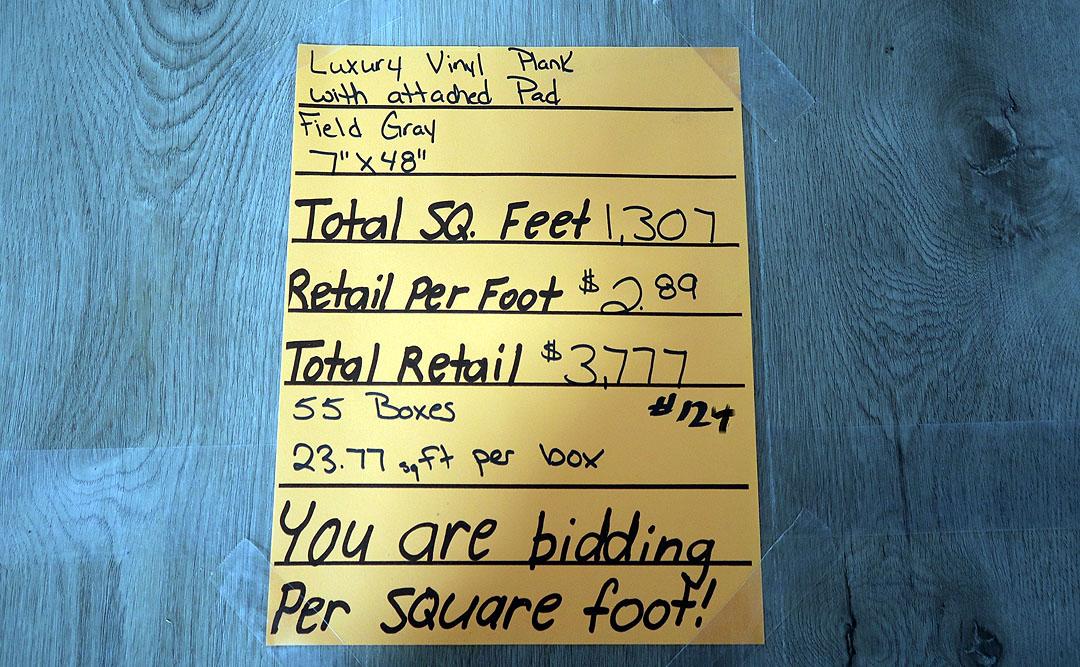 Luxury Vinyl Plank
with attached Pad
Field Gray
7" X 48"
Total SQ. Feet 1,307
Retail Per Foot $2.89
Total Retail $3,777
55 Boxes #124
23.77 sq ft per box
You are bidding
Per square foot!